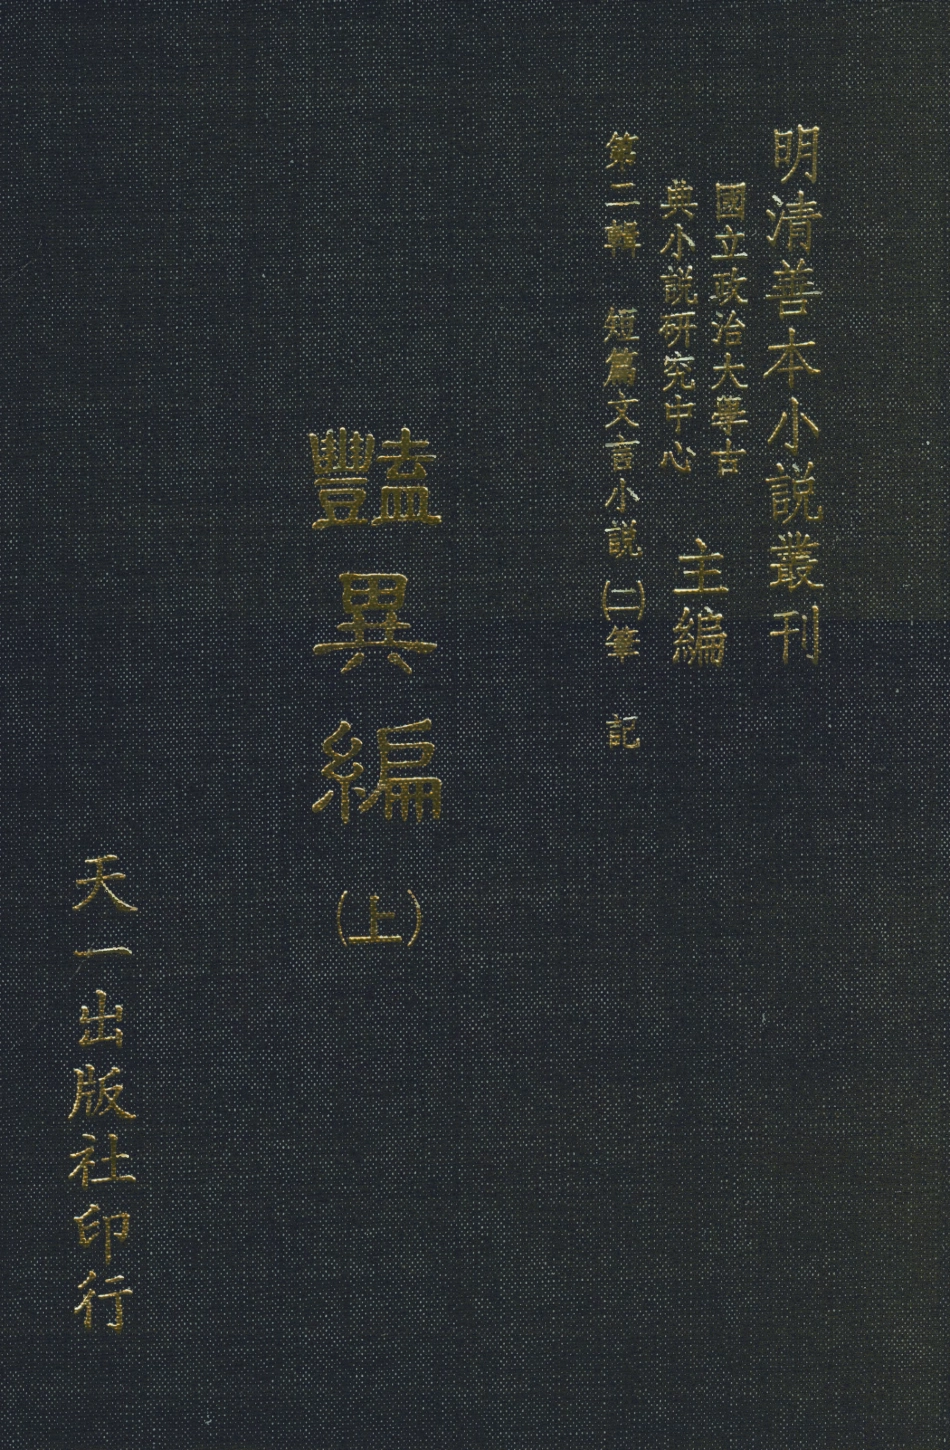 明清善本小説叢刊
國立政治大學古
典小説研究中心
主編
第二輯 短篇文言小説(二)筆記
豔異編(上)
天一出版社印行